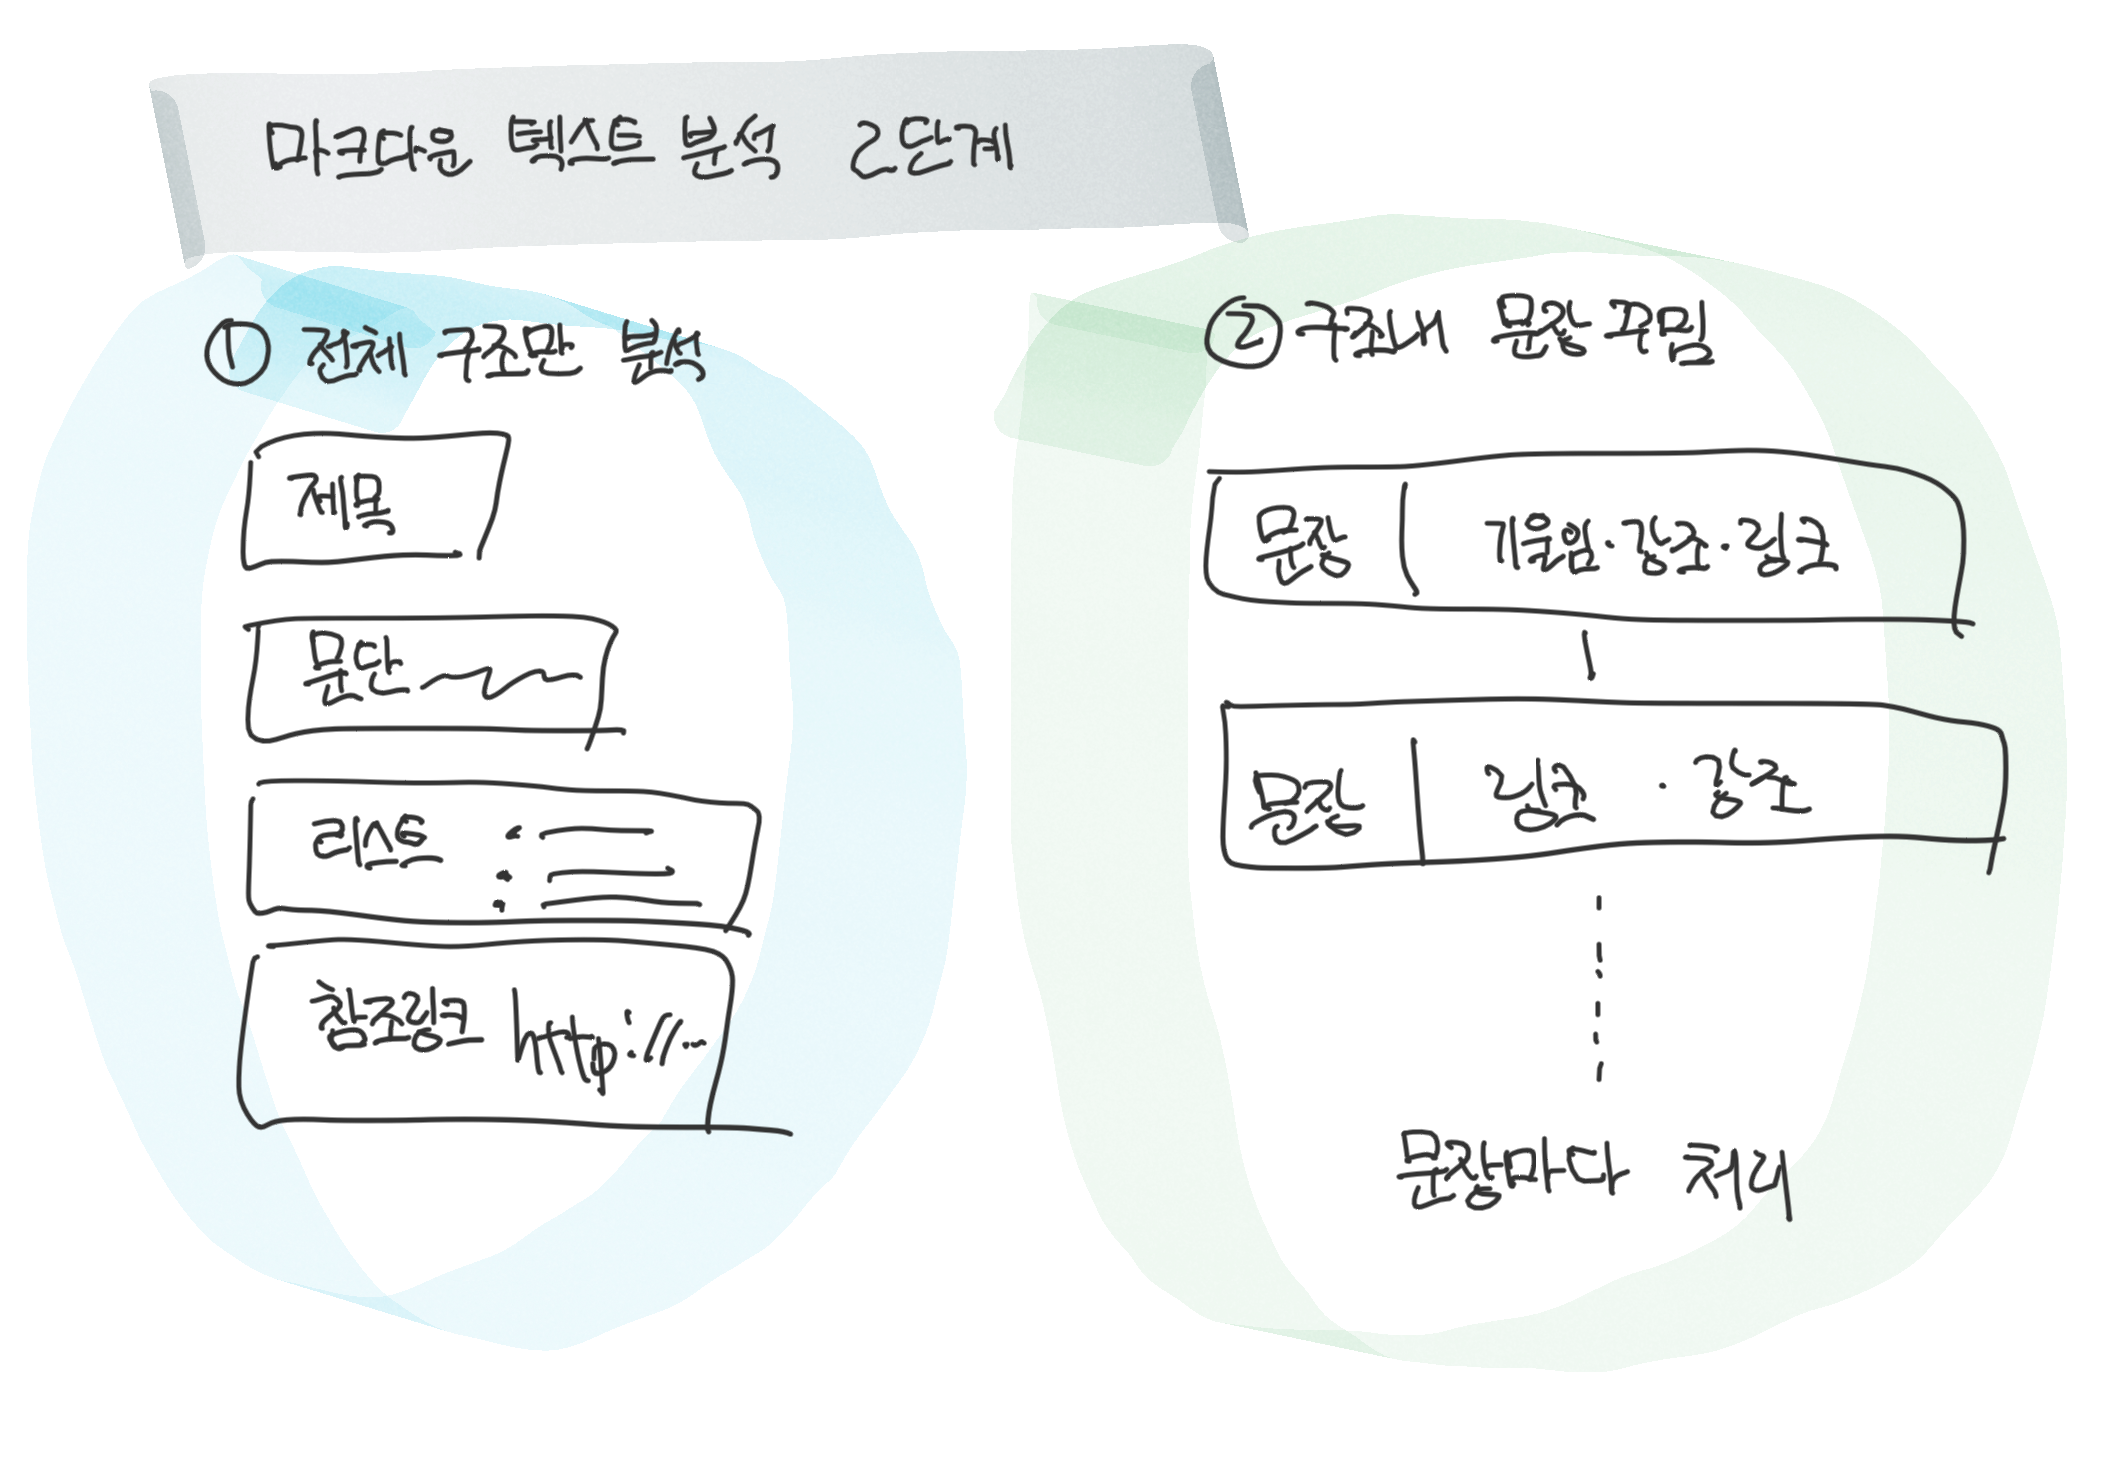 마크다운 텍스트 분석 2단계
① 전체 구조만 분석
제목
문단
리스트
참조링크 http://...
② 구조내 문장 꾸밈
문장 | 기울임·강조·링크
문장 | 링크 · 강조
문장마다 처리